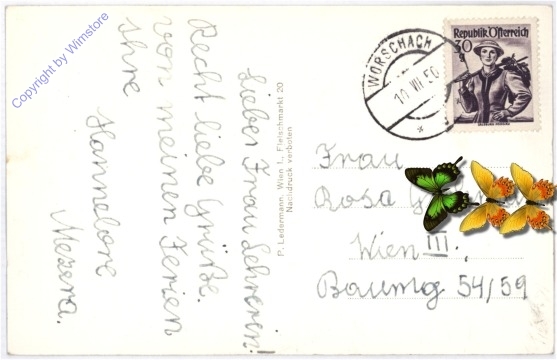 Copyright by Wimstore
Lieber Frau Lehrerin!
Recht liebe Grüße
von meinen Ferien
Ihre
Hannelore
Mezera.
P. Ledermann, Wien I., Fleischmarkt 20
Nachdruck verboten
WÖRSCHACH
10 VII 50
Republik Österreich
30
g
Frau
Rosa
Wien III.
Baumg 54/59